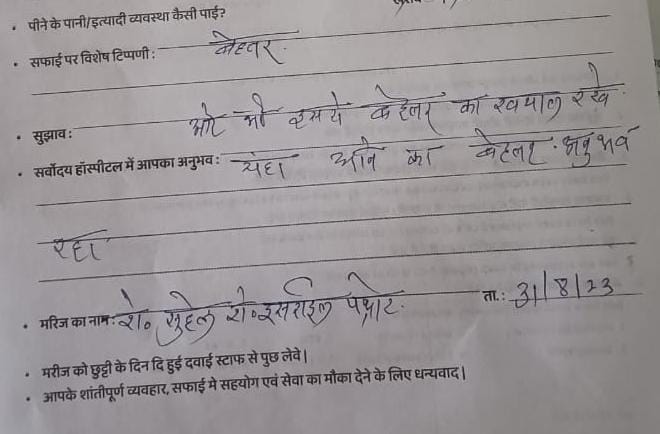 • पीने के पानी/इत्यादी व्यवस्था कैसी पाई?
• सफाई पर विशेष टिप्पणी : बेहतर
• सुझाव : और भी इससे बेहतर का खयाल रखे
• सर्वोदय हॉस्पीटल में आपका अनुभव : यहा आने का बेहतर अनुभव
रहा
• मरिज का नाम : शे० सुहेल शे० इसराईल ता.: 31/8/23
• मरीज को छुट्टी के दिन दि हुई दवाई स्टाफ से पुछ लेवे।
• आपके शांतीपूर्ण व्यवहार, सफाई मे सहयोग एवं सेवा का मौका देने के लिए धन्यवाद।